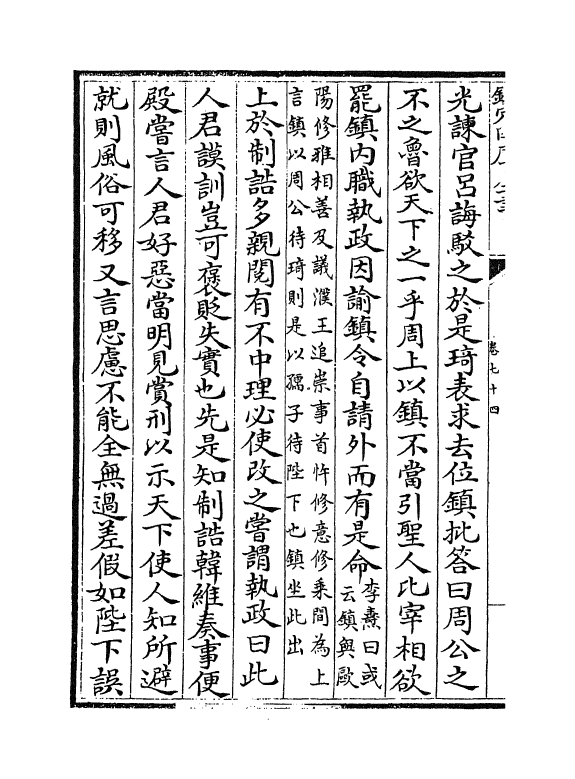 卷七十四
光諫官呂誨駁之於是琦表求去位鎮批答曰周公之
不之魯欲天下之一乎周上以鎮不當引聖人比宰相欲
罷鎮内職執政因諭鎮令自請外而有是命李燾曰或
云鎮與歐
陽修雅相善及議濮王追崇事首忤修意修乗間為上
言鎮以周公待琦則是以孺子待陛下也鎮坐此出
上於制誥多親閱有不中理必使改之嘗謂執政曰此
人君謨訓豈可褒貶失實也先是知制誥韓維奏事便
殿嘗言人君好惡當明見賞刑以示天下使人知所避
就則風俗可移又言思慮不能全無過差假如陛下誤